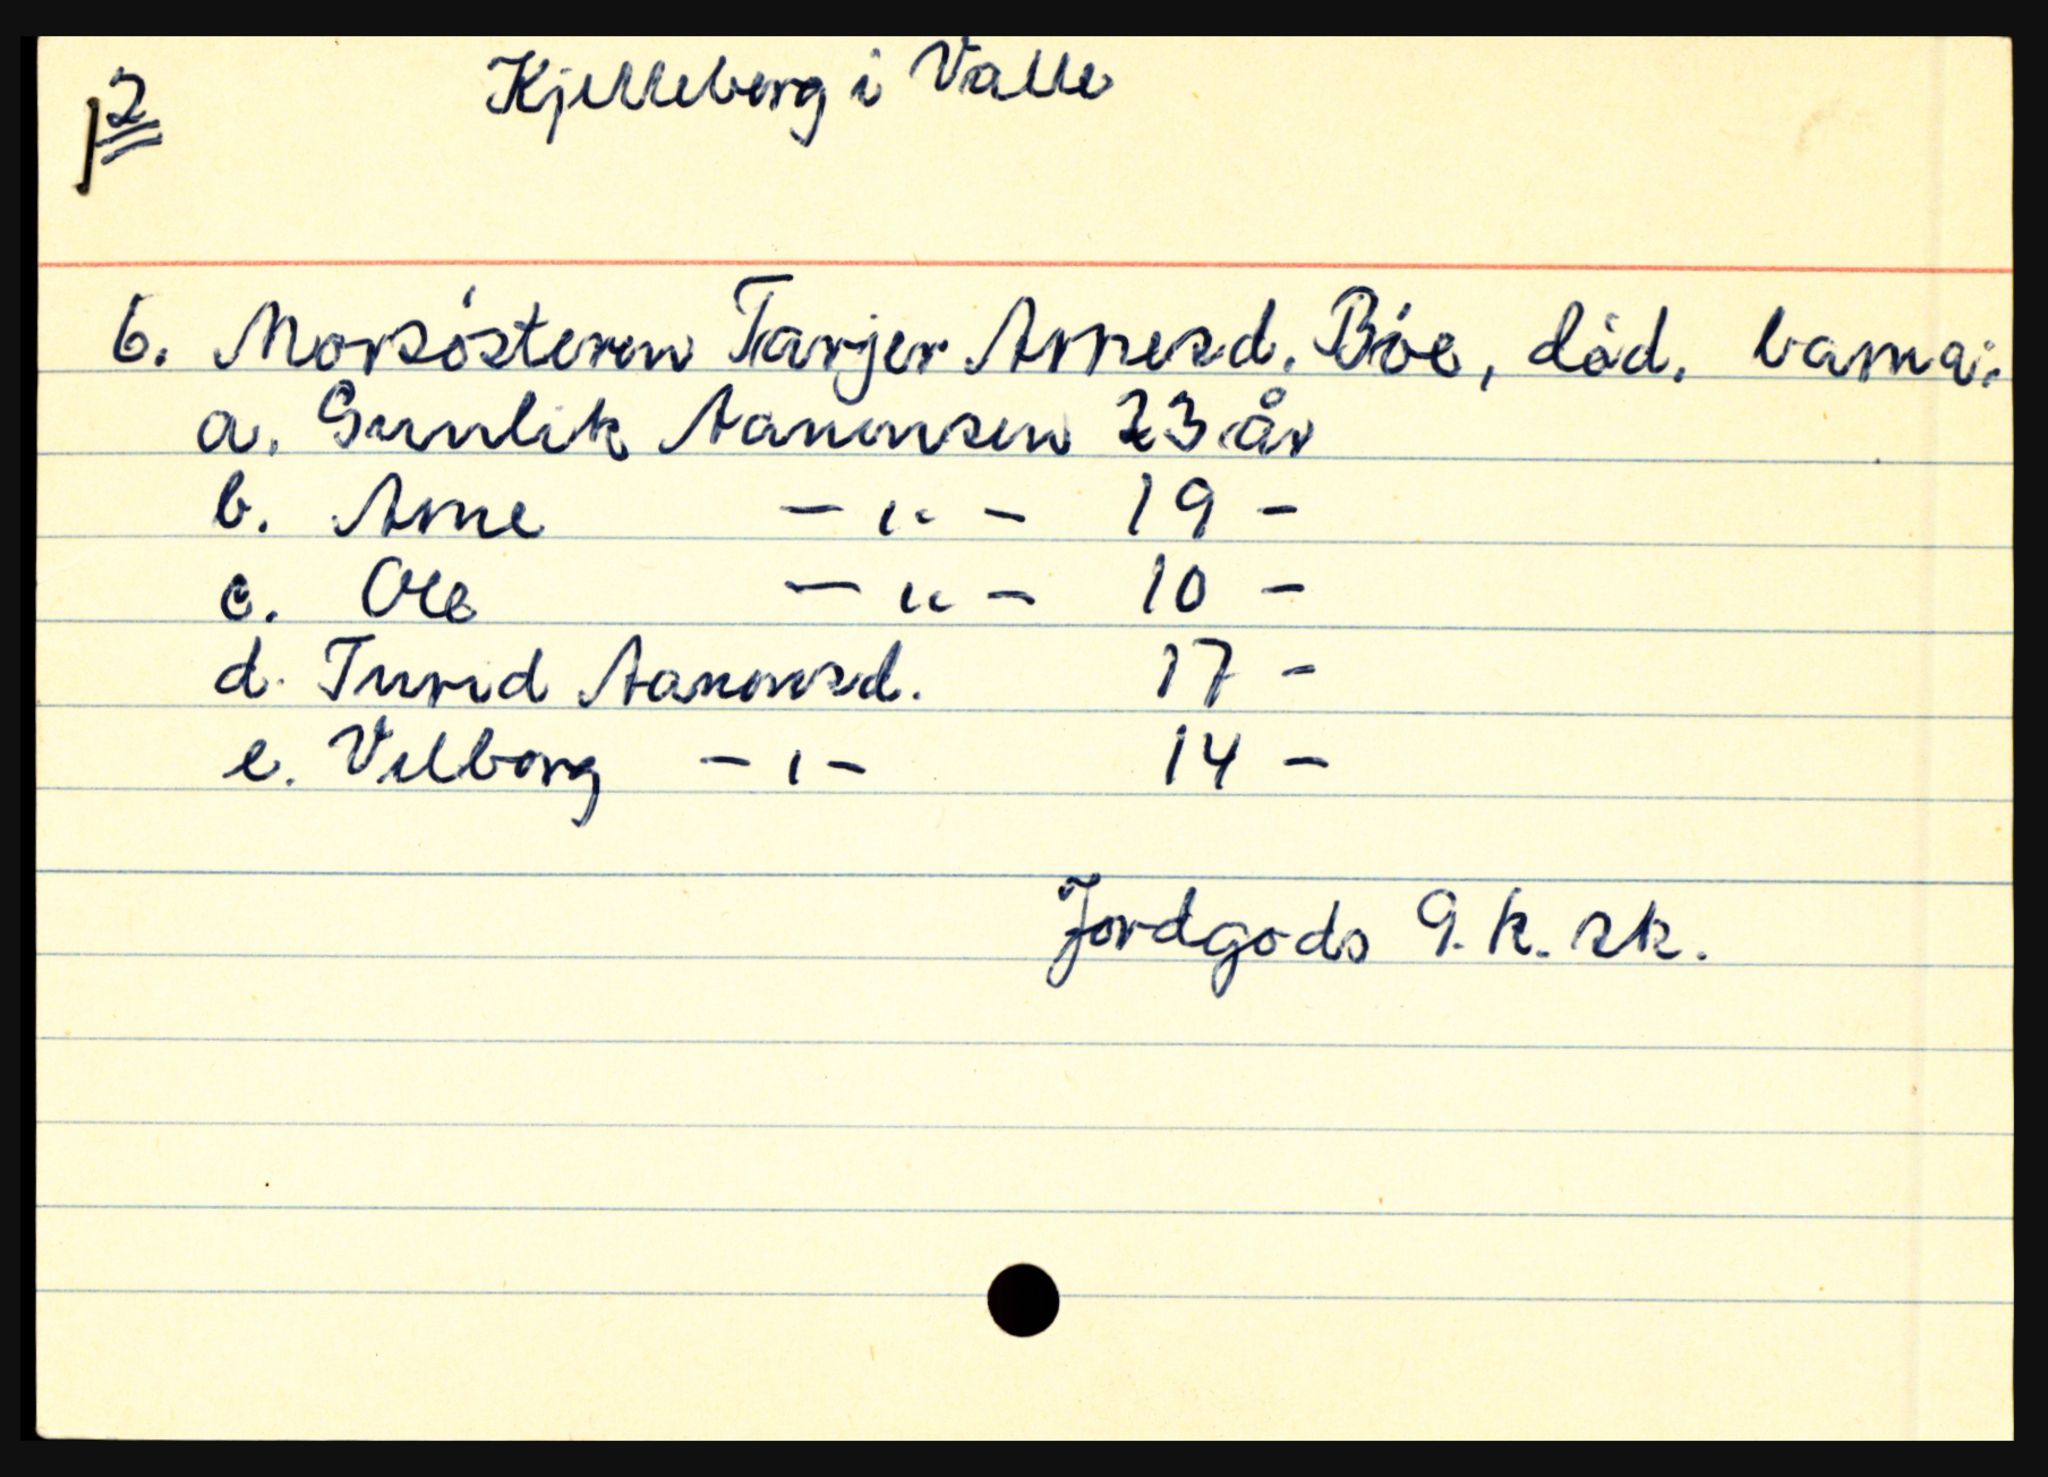 2
Kjelleberg i Valle
6. Morsösteren Tarjer Arnesd. Böe, död. barna:
a. Gunlik Aanonsen 23 år
b. Arne - " - 19 -
c. Ole - " - 10 -
d. Turid Aanonsd. 17 -
e. Vilborg - " - 14 -
Jordgods 9. k. sk.